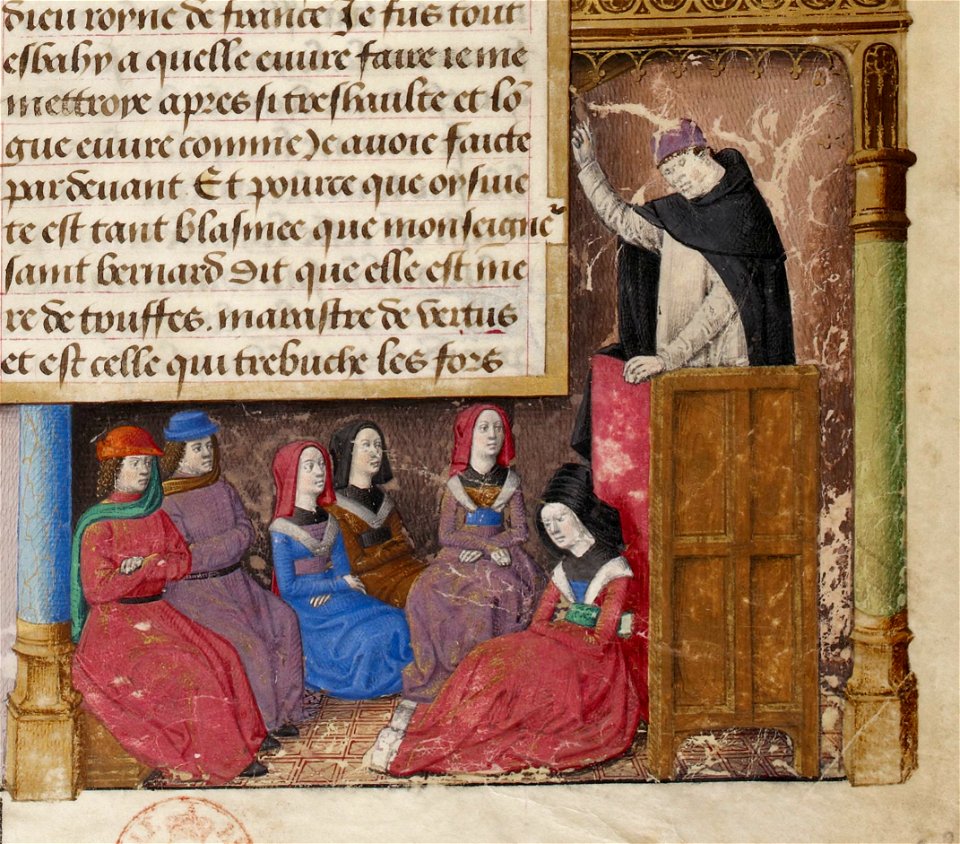 dieu royne de france Je fus tout
esbahy a quelle euure faire ie me
mettroye apres si treshaulte et lō
gue euure comme Je auoie faicte
par deuant Et pource que oysiue
te est tant blasmee que monseigne
saint bernard dit que elle est me
re de touffes. marastre de vertus
et est celle qui trebuche les fors